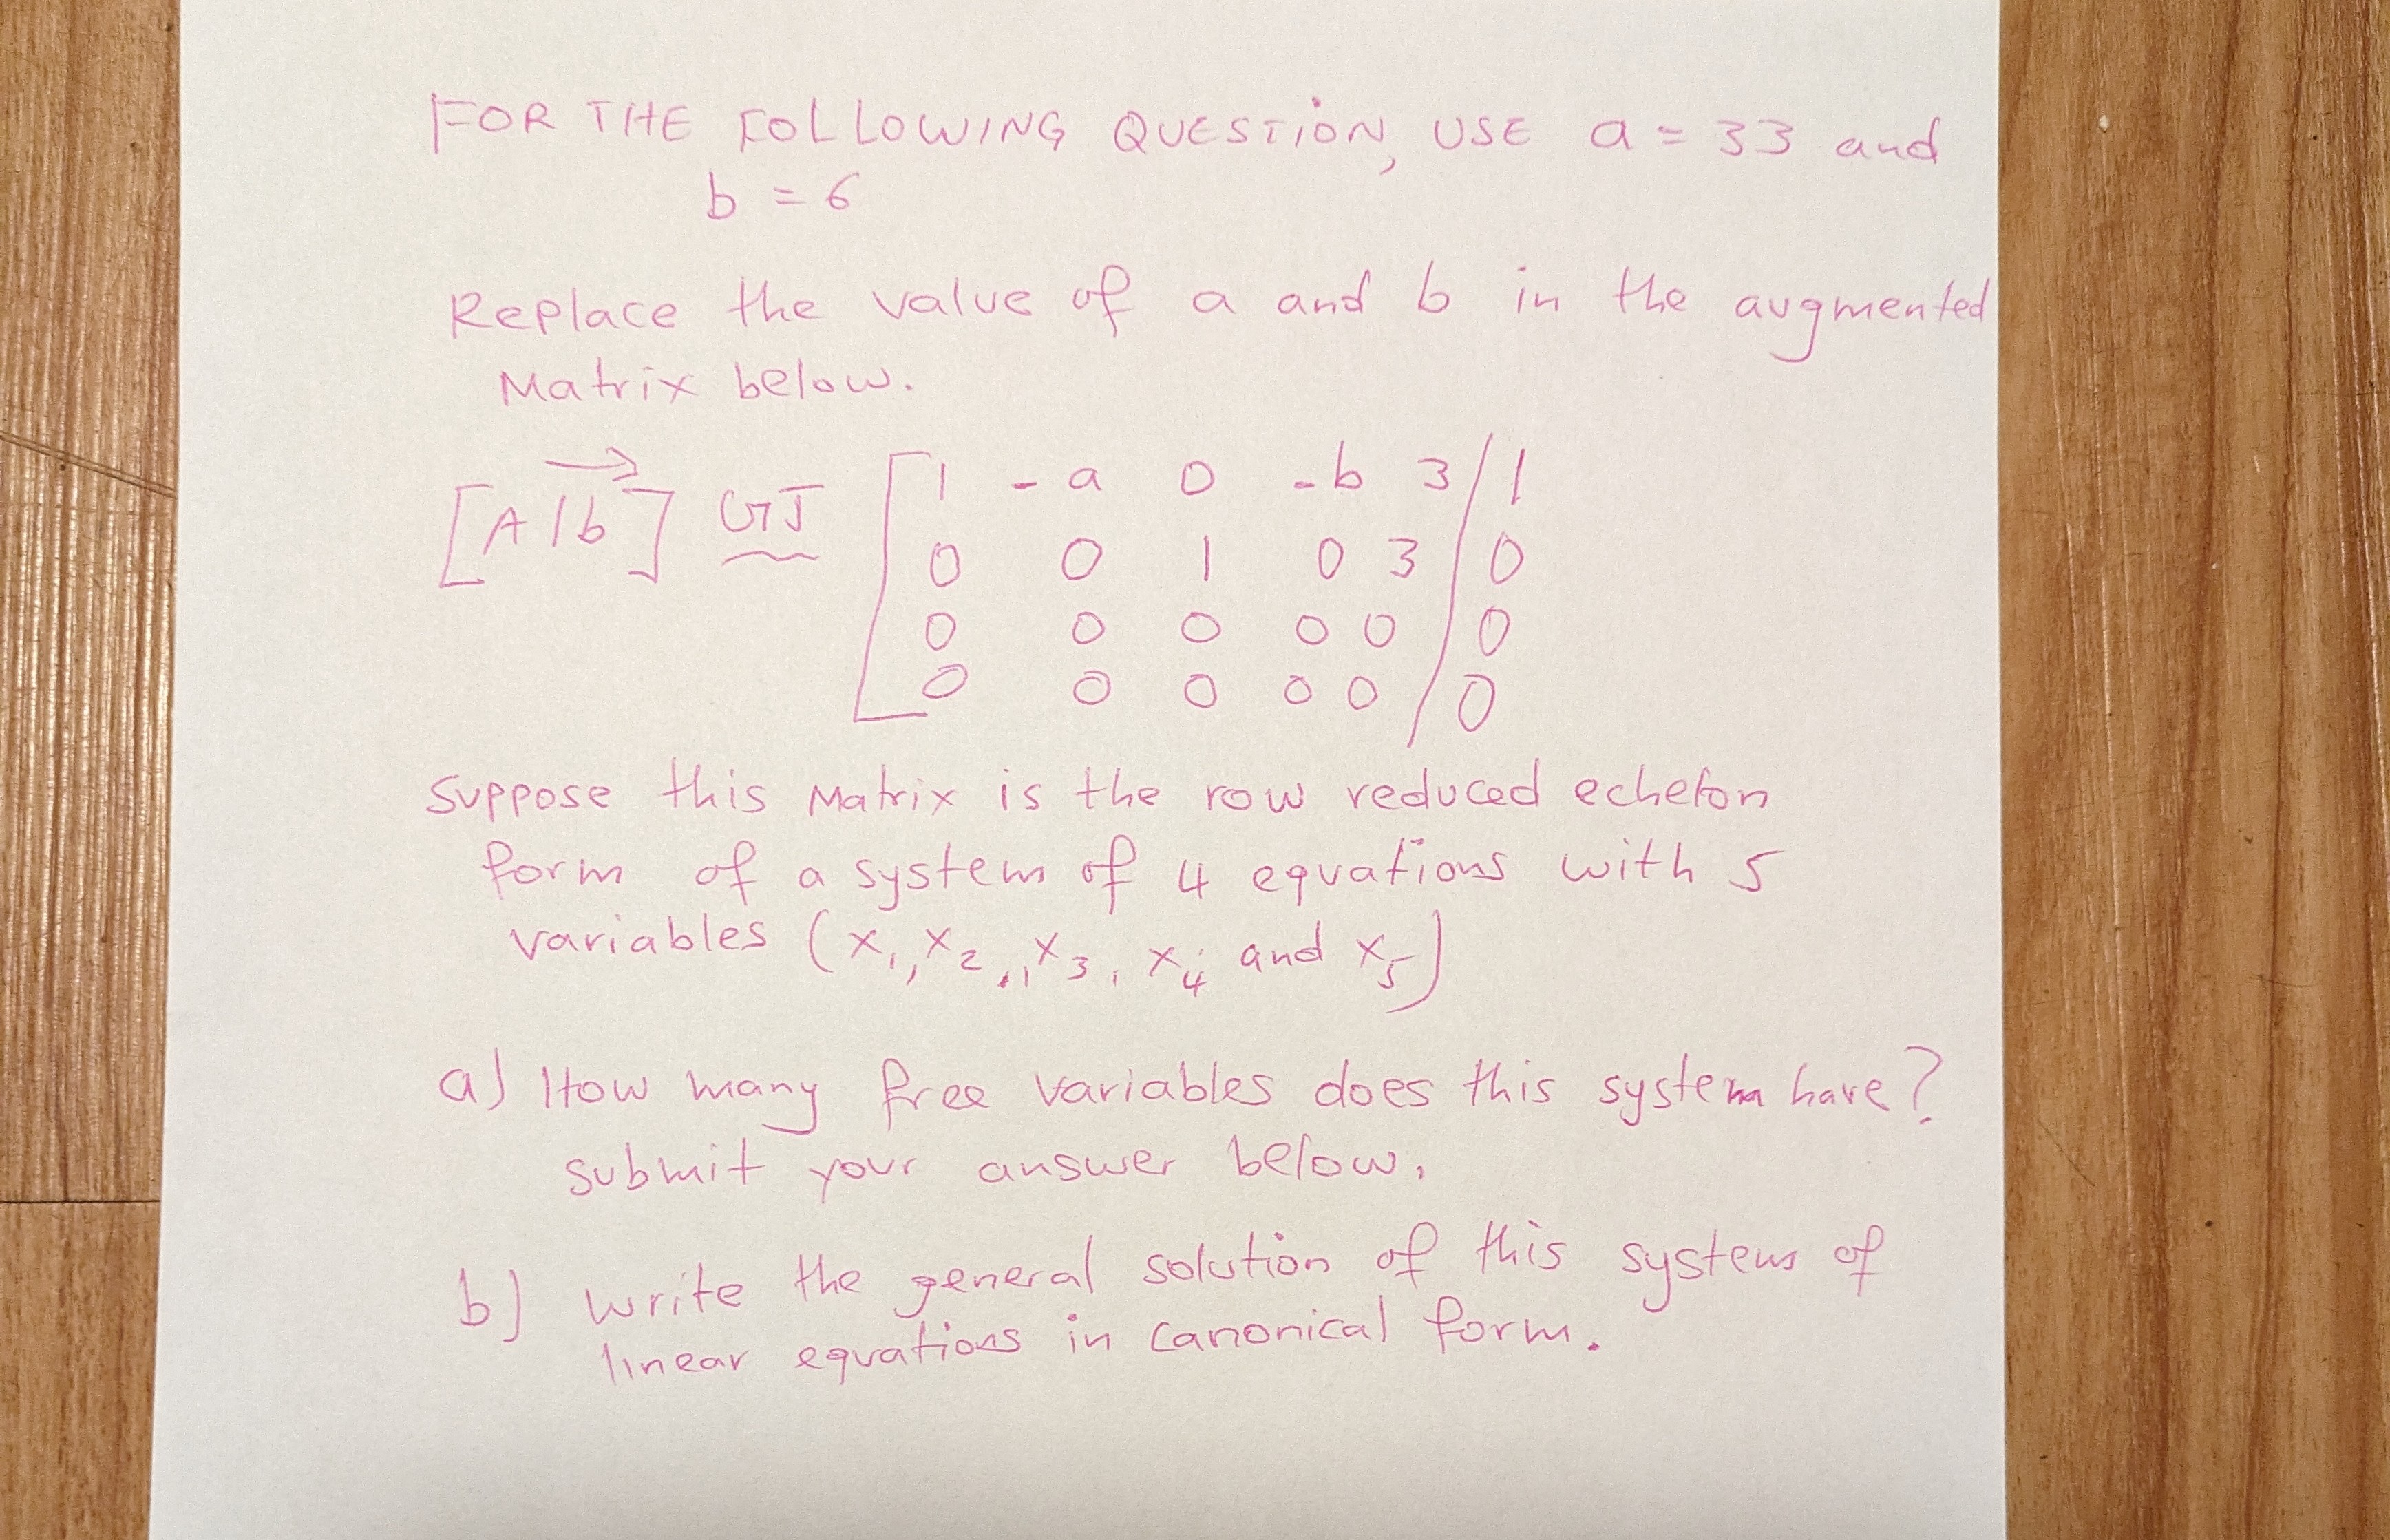 FOR THE FOLLOWING QUESTION, USE a = 33 and
b = 6
Replace the value of a and b in the augmented
Matrix below.
[A|b⃗] GJ~ [1 -a 0 -b 3 | 1
0 0 1 0 3 | 0
0 0 0 0 0 | 0
0 0 0 0 0 | 0
Suppose this Matrix is the row reduced echelon
form of a system of 4 equations with 5
variables (x₁, x₂, x₃, x₄ and x₅)
a) How many free variables does this system have?
submit your answer below.
b) write the general solution of this system of
linear equations in canonical form.